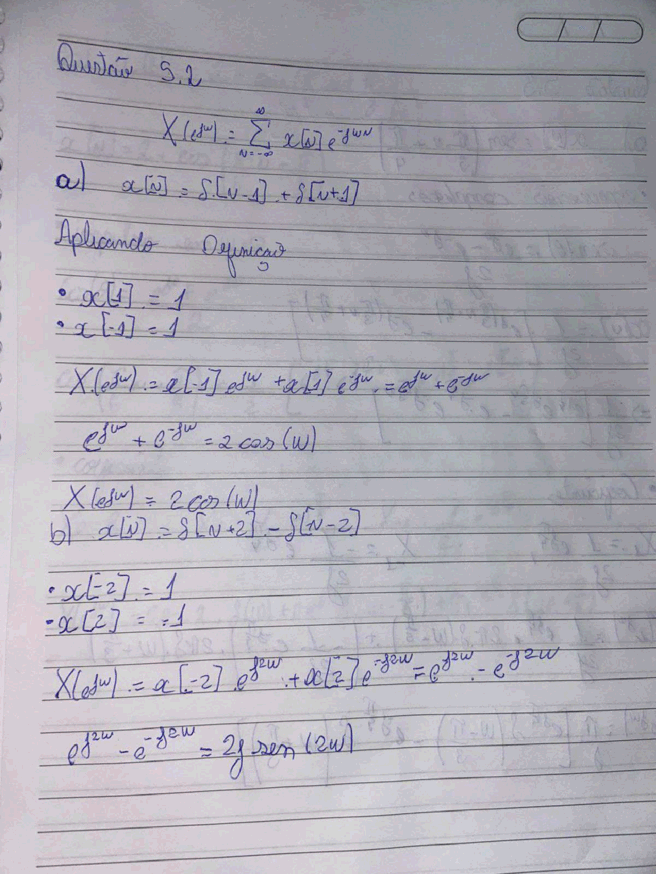 Questão 5.2
X(e^jw) = ∑_{N=-∞}^{∞} x[N] e^-jwN
a) x[N] = δ[N-1] + δ[N+1]
Aplicando Definição
• x[1] = 1
• x[-1] = 1
X(e^jw) = x[-1] e^jw + x[1] e^-jw = e^jw + e^-jw
e^jw + e^-jw = 2 cos(w)
X(e^jw) = 2 cos(w)
b) x[N] = δ[N+2] - δ[N-2]
• x[-2] = 1
• x[2] = -1
X(e^jw) = x[-2] e^j2w + x[2] e^-j2w = e^j2w - e^-j2w
e^j2w - e^-j2w = 2j sen(2w)